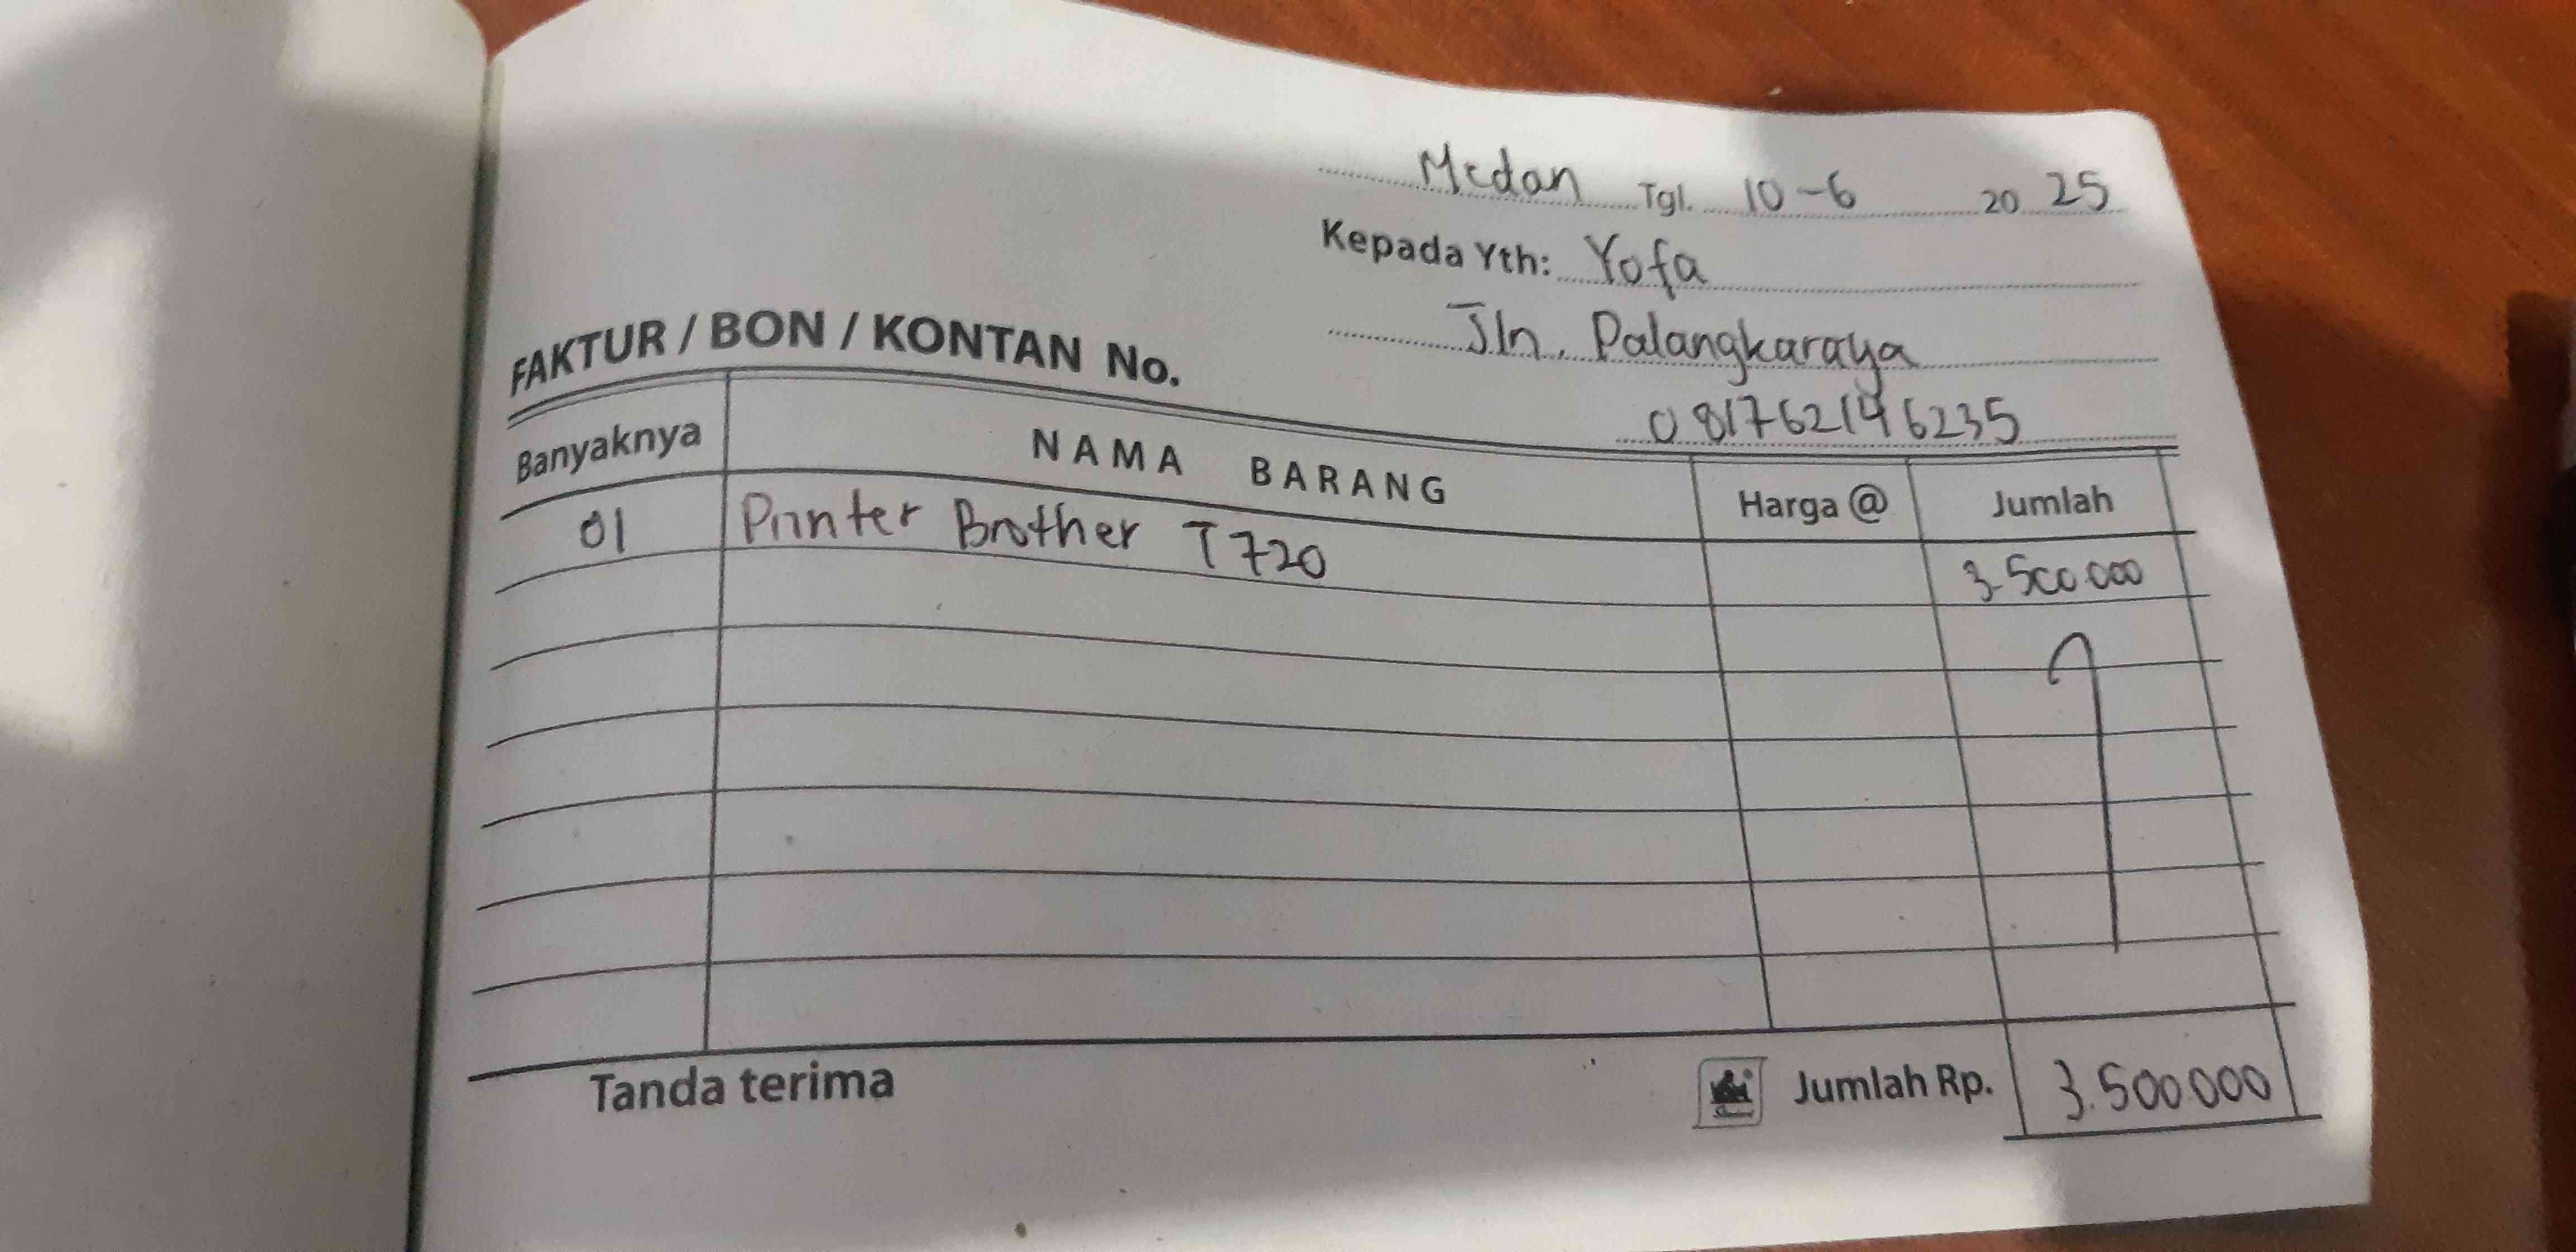 Medan Tgl. 10-6 20 25
Kepada Yth: Yofa
Jln. Palangkaraya
081762146235
FAKTUR / BON / KONTAN No.
Banyaknya NAMA BARANG Harga @ Jumlah
01 Printer Brother T720 3.500.000
Tanda terima Jumlah Rp. 3.500.000